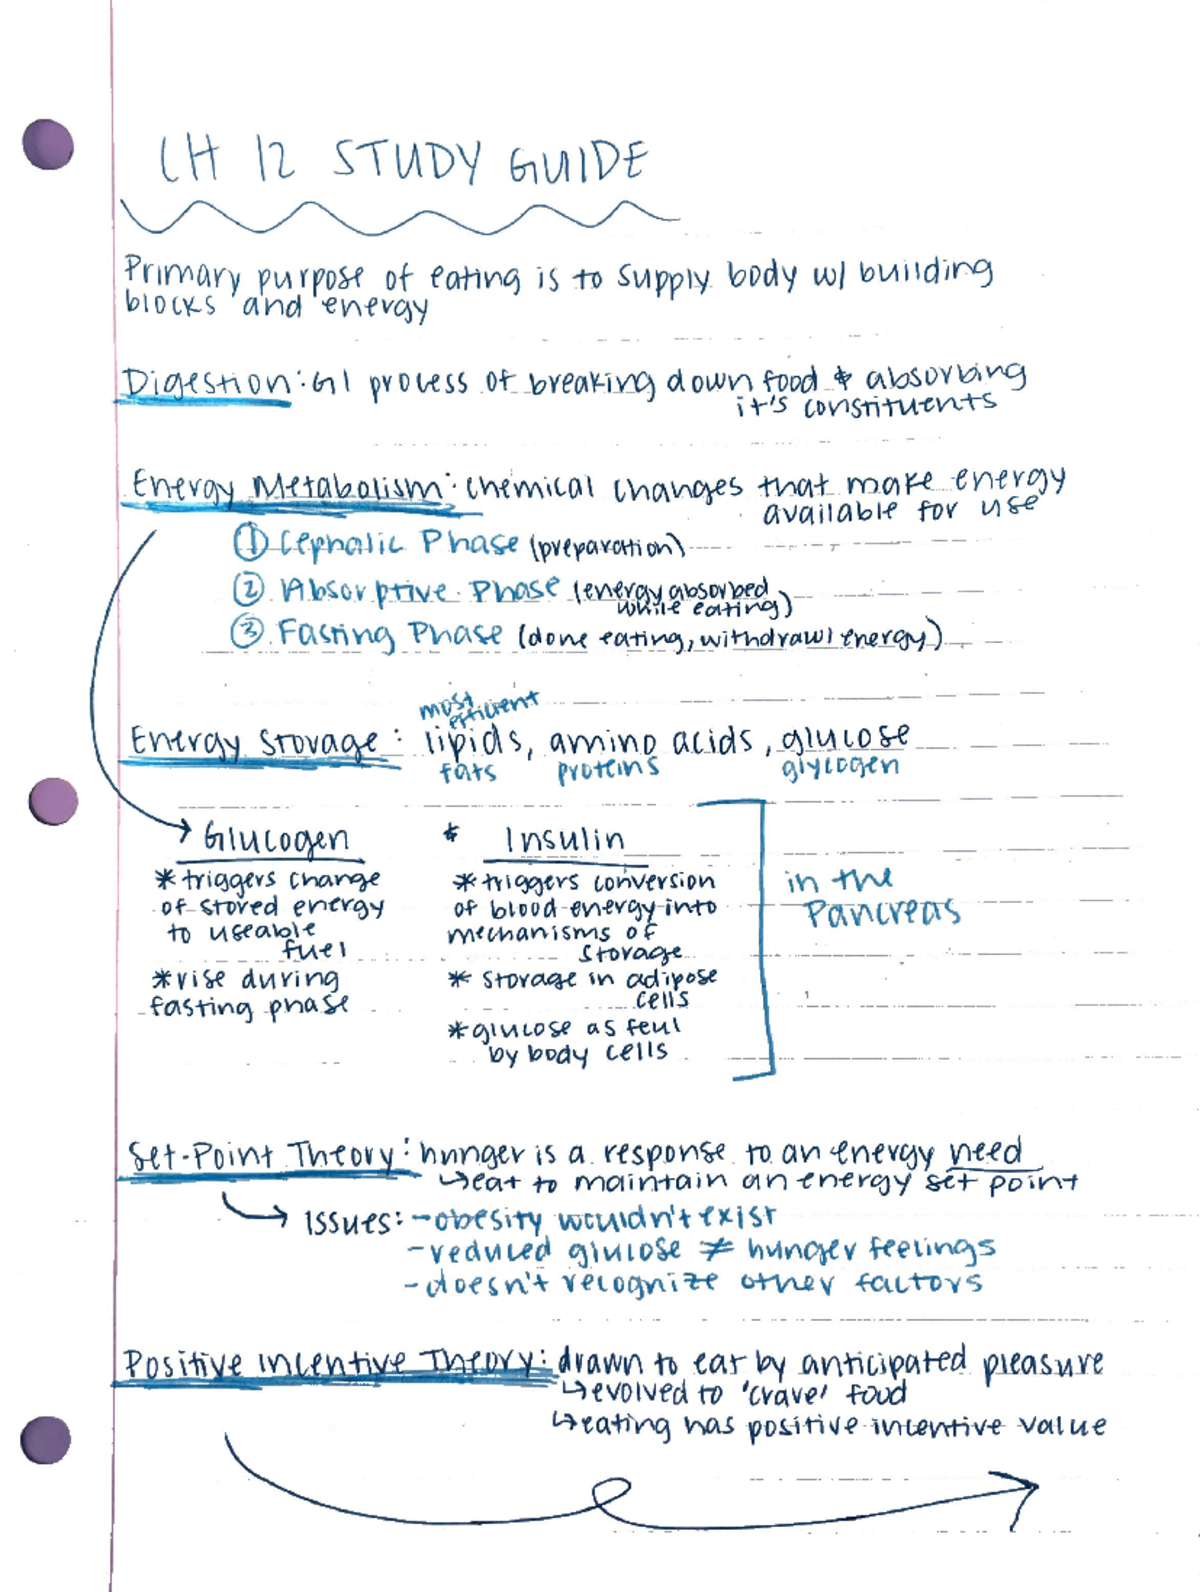 CH 12 STUDY GUIDE
Primary purpose of eating is to supply body w/ building
blocks and energy
Digestion: GI process of breaking down food & absorbing
it's constituents
Energy Metabolism: chemical changes that make energy
available for use
① Cephalic Phase (preparation)
② Absorptive Phase (energy absorbed
while eating)
③ Fasting Phase (done eating, withdrawl energy)
most
efficient
Energy Storage: lipids, amino acids, glucose
fats proteins glycogen
Glucogen * Insulin
*triggers change
of stored energy
to useable
fuel
*rise during
fasting phase
*triggers conversion
of blood energy into
mechanisms of
storage
* storage in adipose
cells
*glucose as feul
by body cells
in the
Pancreas
Set-Point Theory: hunger is a response to an energy need
↳eat to maintain an energy set point
→ Issues: -obesity wouldn't exist
-reduced glucose ≠ hunger feelings
-doesn't recognize other factors
Positive Incentive Theory: drawn to eat by anticipated pleasure
↳evolved to 'crave' food
↳eating has positive incentive value